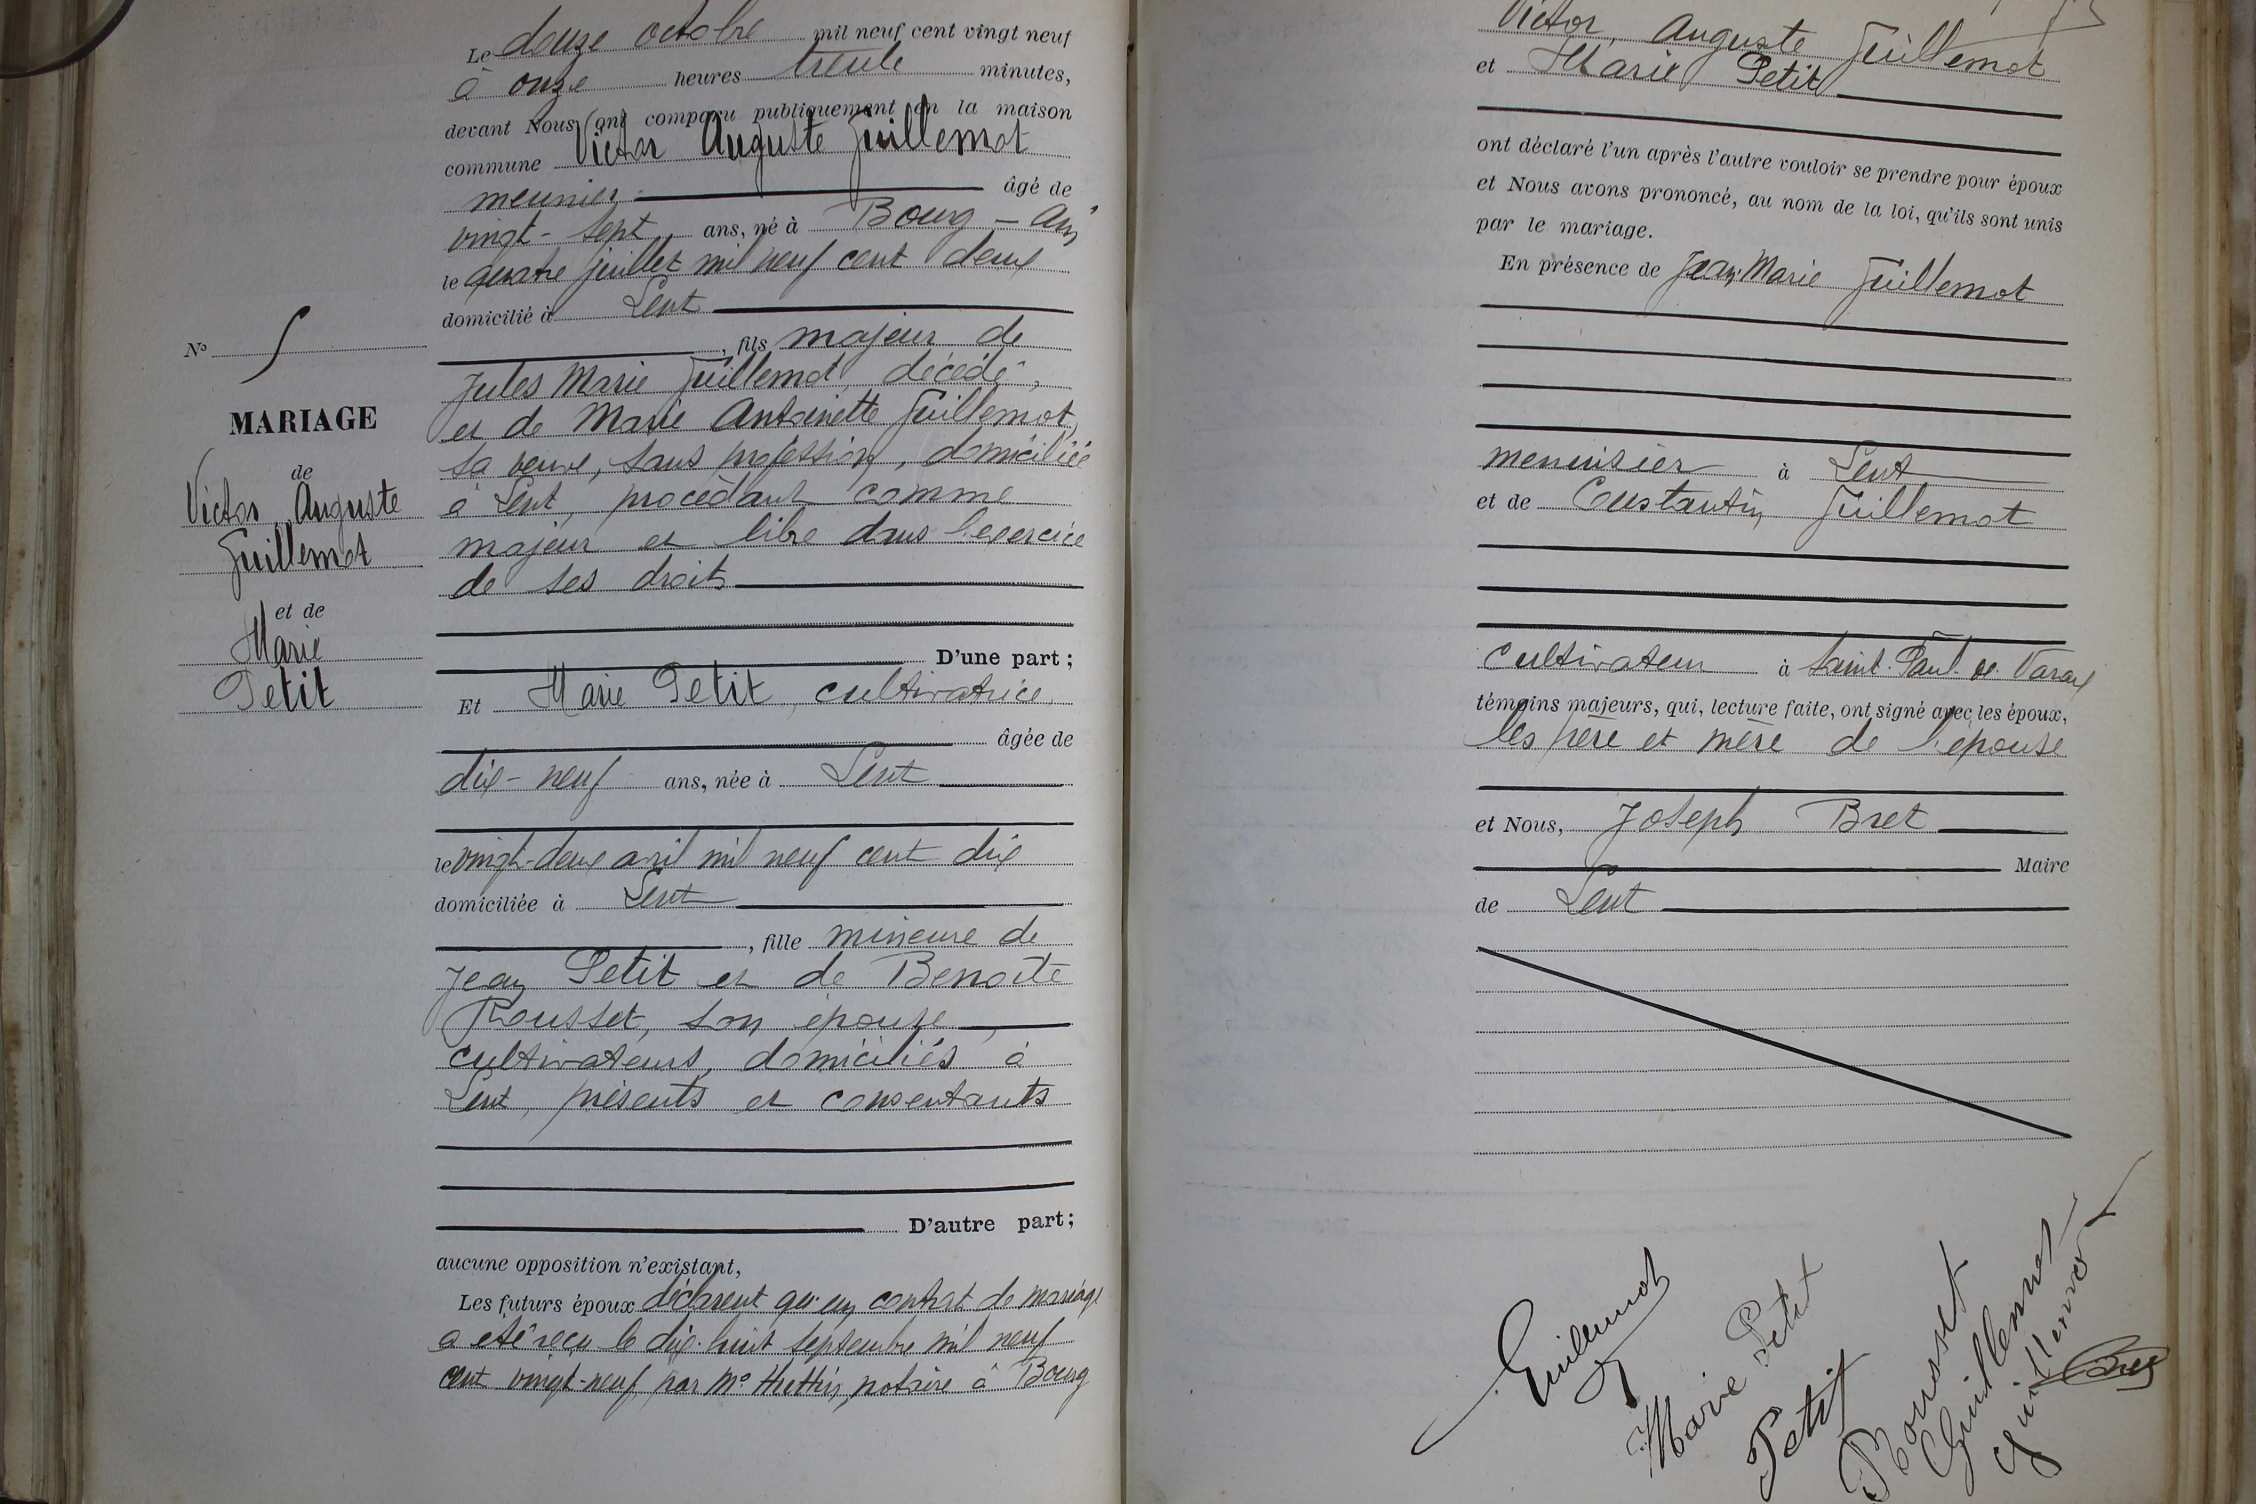 Le douze octobre mil neuf cent vingt neuf
à onze heures trente minutes,
devant Nous ont comparu publiquement en la maison
commune Victor Auguste Guillemot
meunier âgé de
vingt-sept ans, né à Bourg - Ain
le quatre juillet mil neuf cent deux
domicilié à Lent
, fils majeur de
Jules Marie Guillemot, décédé,
et de Marie Antoinette Guillemot,
sa veuve, sans profession, domiciliée
à Lent, procèdant comme
majeur et libre dans l'exercice
de ses droits
D'une part ;
Et Marie Petit, cultivatrice,
âgée de
dix-neuf ans, née à Lent
le vingt-deux avril mil neuf cent dix
domiciliée à Lent
, fille mineure de
Jean Petit et de Benoîte
Rousset, son épouse,
cultivateurs, domiciliés à
Lent, présents et consentants
D'autre part ;
aucune opposition n'existant,
Les futurs époux déclarent qu'un contrat de mariage
a été reçu le dix-huit septembre mil neuf
cent vingt-neuf par Me Huttin, notaire à Bourg
No 5
MARIAGE
de
Victor Auguste
Guillemot
et de
Marie
Petit
Victor, Auguste Guillemot
et Marie Petit
ont déclaré l'un après l'autre vouloir se prendre pour époux
et Nous avons prononcé, au nom de la loi, qu'ils sont unis
par le mariage.
En présence de Jean-Marie Guillemot
menuisier à Lent
et de Constantin Guillemot
cultivateur à Saint-Paul-de-Varax
témoins majeurs, qui, lecture faite, ont signé avec les époux,
les père et mère de l'épouse
et Nous, Joseph Bret
Maire
de Lent
Guillemot
Marie Petit
Petit
Rousset
Guillemot
Guillemot
Bret